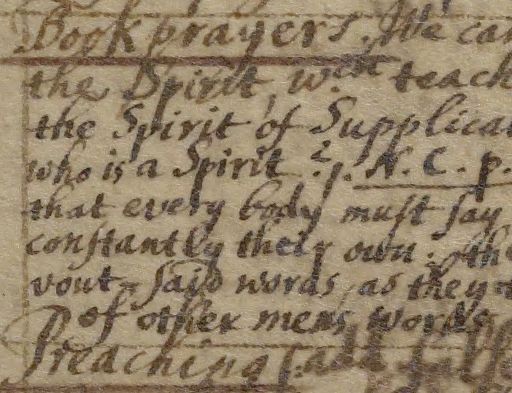 Book prayers. We can
the Spirit, wch teach
the Spirit of Supplicat
who is a Spirit ? N. C. p.
that every body must say
constantly their own. the
vout said words as they
of other mens words
Preaching